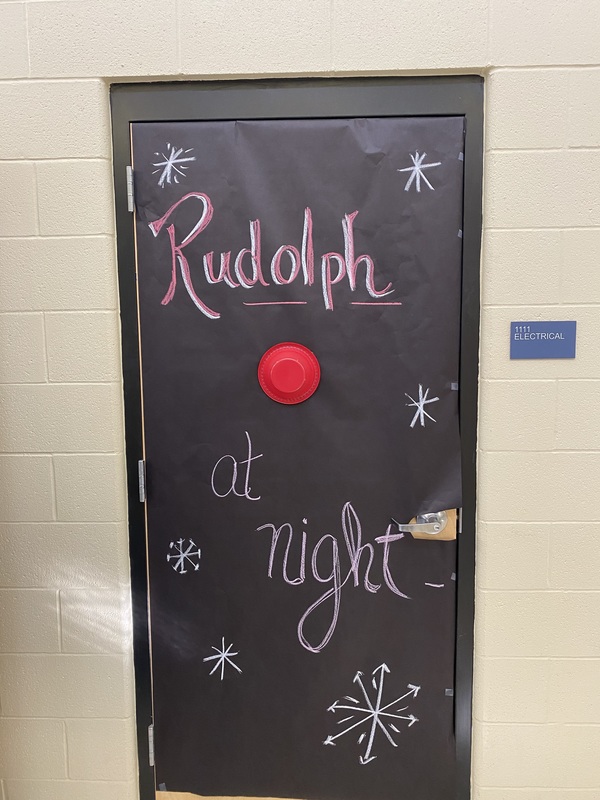 Rudolph
1111
ELECTRICAL
at
night